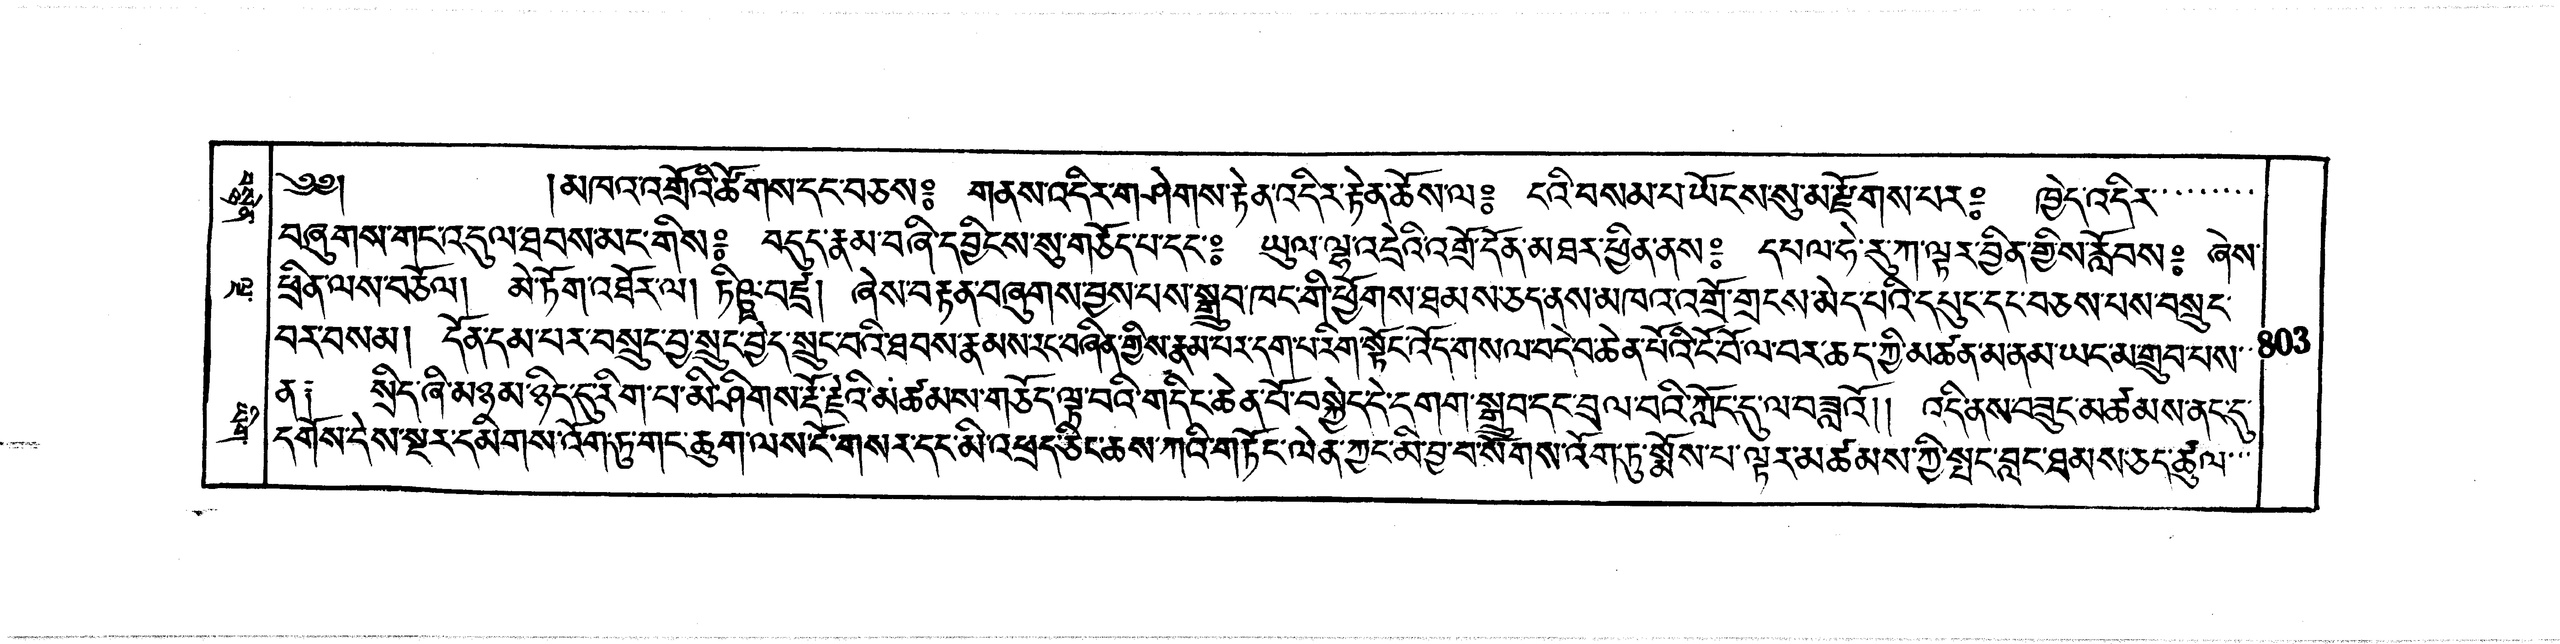 ༄༅། །མཁའ་འགྲོའི་ཚོགས་དང་བཅས༔ གནས་འདིར་གཤེགས་རྟེན་འདིར་རྟེན་ཆོས་ལ༔ ངའི་བསམ་པ་ཡོངས་སུ་མ་རྫོགས་པར༔ ཁྱེད་འདིར་
བཞུགས་གང་འདུལ་ཐབས་མང་གིས༔ བདུད་རྣམ་བཞི་དབྱིངས་སུ་གཅོད་པ་དང་༔ ཡུལ་ལྷ་འདྲེའི་འགྲོ་དོན་མཐར་ཕྱིན་ནས༔ དཔལ་ཧེ་རུ་ཀ་ལྟར་བྱིན་གྱིས་རློབས༔ ཞེས་
ཕྲིན་ལས་བཅོལ། མེ་ཏོག་འཐོར་ལ། ཏིཥྛ་བཛྲ། ཞེས་བརྟན་བཞུགས་བྱས་པས་སྒྲུབ་ཁང་གི་ཕྱོགས་ཐམས་ཅད་ནས་མཁའ་འགྲོ་གྲངས་མེད་པའི་དཔུང་དང་བཅས་པས་བསྲུང་
བར་བསམ། དོན་དམ་པར་བསྲུང་བྱ་སྲུང་བྱེད་སྲུང་བའི་ཐབས་རྣམས་རང་བཞིན་གྱིས་རྣམ་པར་དག་པ་རིག་སྟོང་འོད་གསལ་བདེ་བ་ཆེན་པོའི་ངོ་བོ་ལ་བར་ཆད་ཀྱི་མཚན་མ་ནམ་ཡང་མ་གྲུབ་པས་
ན༔ སྲིད་ཞི་མཉམ་ཉིད་དུ་རིག་པ་མི་ཤིགས་རྡོ་རྗེའི་མཚམས་གཅོད་ལྟ་བའི་གདིང་ཆེན་པོ་བསྐྱེད་དེ་དགག་སྒྲུབ་དང་བྲལ་བའི་ཀློང་དུ་ལ་བཟླའོ།། འདི་ནས་བཟུང་མཚམས་ནང་དུ་
དགོས་དེས་སྔར་དམིགས་འོག་ཏུ་གང་ཆུག་ལས་ངོ་གསར་དང་མི་འཕྲད་ཅིང་ཆས་ཀའི་གཏོང་ལེན་ཀྱང་མི་བྱ་བ་སོགས་འོག་ཏུ་སྨོས་པ་ལྟར་མཚམས་ཀྱི་སྤང་བླང་ཐམས་ཅད་ཚུལ་
803